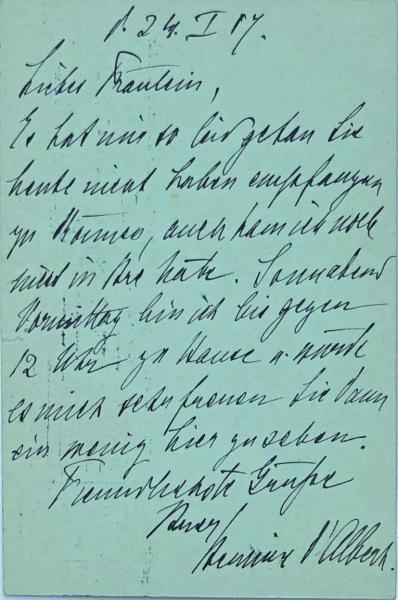 d. 24. I 17.
Liebes Fräulein,
Es hat mir so leid getan Sie
heute nicht haben empfangen
zu können, auch kam ich noch
nicht in Ihre Nähe. Sonnabend
Vormittag bin ich bis gegen
12 Uhr zu Hause u. würde
es mich sehr freuen Sie dann
ein wenig hier zu sehen.
Freundlichste Grüße
Ihre
Hermine d'Albert.